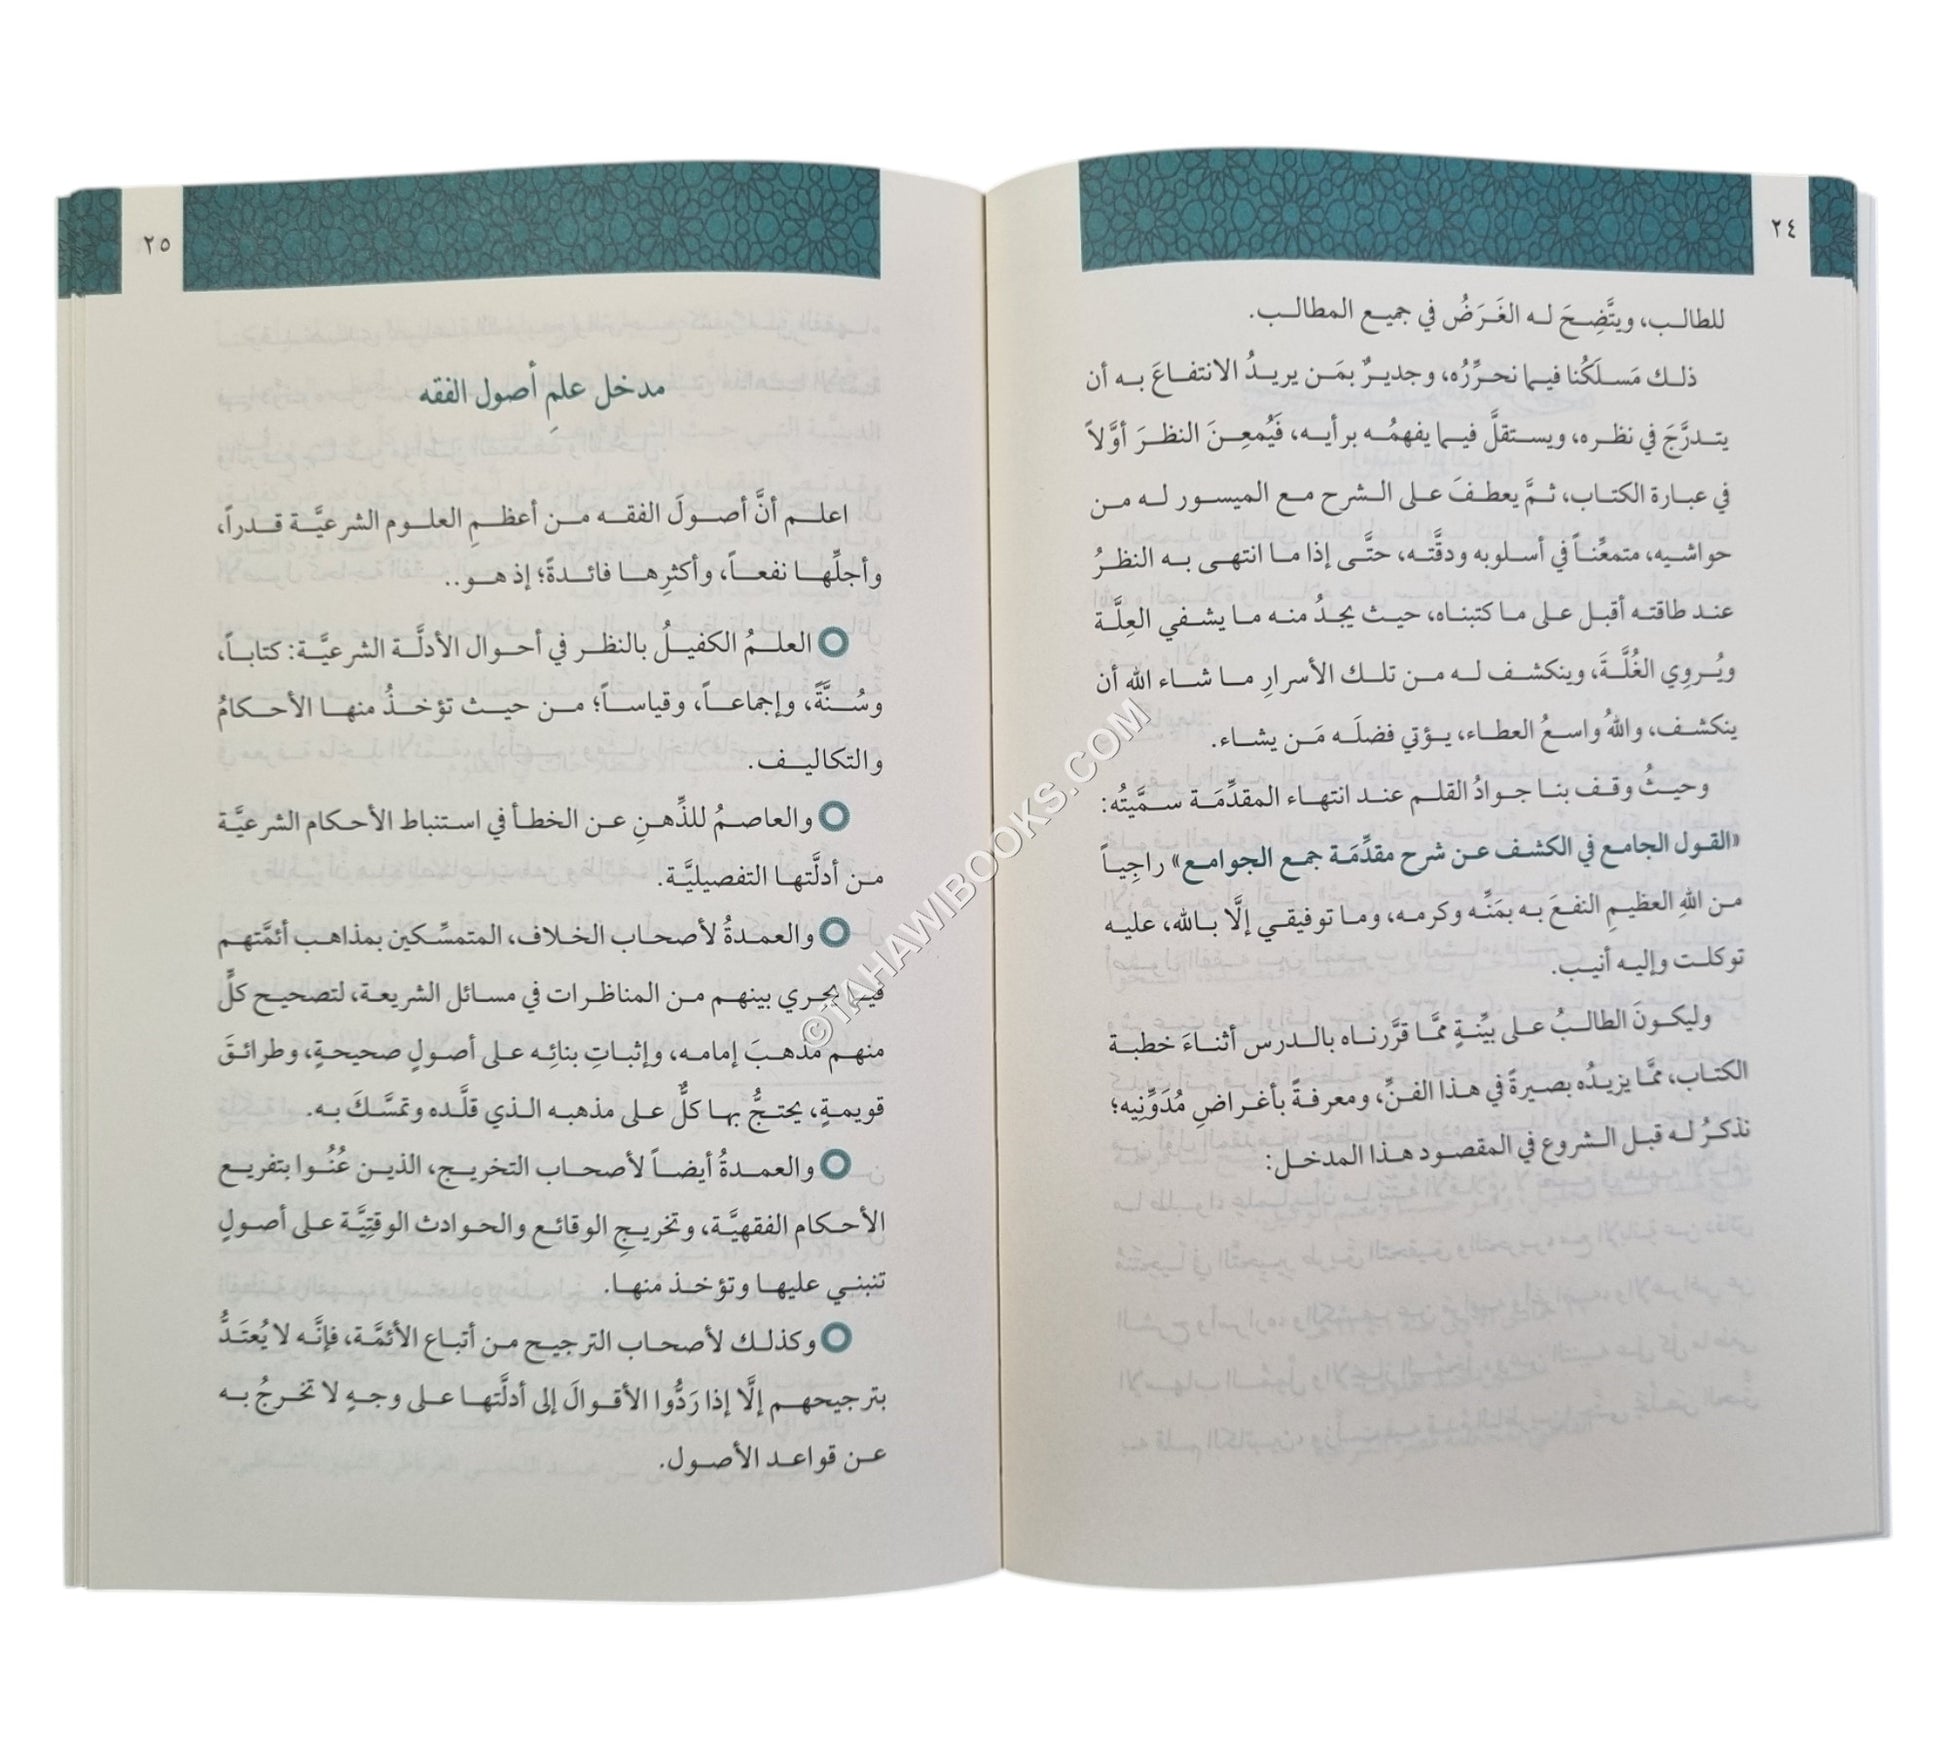 ٢٤
للطالب، ويتَّضِحَ له الغَرَضُ في جميع المطالب.
ذلك مَسلَكُنا فيما نحرِّرُه، وجديرٌ بمَن يريدُ الانتفاعَ به أن
يتدرَّجَ في نظره، ويستقلَّ فيما يفهمُه برأيه، فَيُمعِنَ النظرَ أوَّلاً
في عبارة الكتاب، ثمَّ يعطفَ على الشرح مع الميسور له من
حواشيه، متمعِّناً في أسلوبه ودقَّته، حتَّى إذا ما انتهى به النظرُ
عند طاقته أقبل على ما كتبناه، حيث يجدُ منه ما يشفي العِلَّة
ويُروِي الغُلَّةَ، وينكشف له من تلك الأسرارِ ما شاء الله أن
ينكشف، واللهُ واسعُ العطاء، يؤتي فضلَه مَن يشاء.
وحيثُ وقف بنا جوادُ القلم عند انتهاء المقدِّمَة سمَّيتُه:
«القول الجامع في الكشف عن شرح مقدِّمَة جمع الجوامع» راجِياً
من اللهِ العظيمِ النفعَ به بمَنِّه وكرمه، وما توفيقي إلَّا بالله، عليه
توكلت وإليه أنيب.
وليكونَ الطالبُ على بيِّنةٍ ممَّا قرَّرناه بالدرس أثناءَ خطبة
الكتاب، ممَّا يزيدُه بصيرةً في هذا الفنِّ، ومعرفةً بأغراضِ مُدَوِّنِيه؛
نذكرُ له قبل الشروع في المقصود هذا المدخل:
٢٥
مدخل علمِ أصول الفقه
اعلم أنَّ أصولَ الفقه من أعظمِ العلوم الشرعيَّة قدراً،
وأجلِّها نفعاً، وأكثرِها فائدةً؛ إذ هو..
العلمُ الكفيلُ بالنظر في أحوال الأدلَّة الشرعيَّة: كتاباً،
وسُنَّةً، وإجماعاً، وقياساً؛ من حيث تؤخذُ منها الأحكامُ
والتكاليف.
والعاصمُ للذِّهنِ عن الخطأ في استنباط الأحكام الشرعيَّة
من أدلَّتها التفصيليَّة.
والعمدةُ لأصحاب الخلاف، المتمسِّكين بمذاهب أئمَّتهم
فيما يجري بينهم من المناظرات في مسائل الشريعة، لتصحيح كلٍّ
منهم مذهبَ إمامه، وإثباتِ بنائِه على أصولٍ صحيحةٍ، وطرائقَ
قويمةٍ، يحتجُّ بها كلٌّ على مذهبه الذي قلَّده وتمسَّكَ به.
والعمدةُ أيضاً لأصحاب التخريج، الذين عُنُوا بتفريع
الأحكام الفقهيَّة، وتخريجِ الوقائع والحوادث الوقتِيَّة على أصولٍ
تنبني عليها وتؤخذ منها.
وكذلك لأصحاب الترجيح من أتباع الأئمَّة، فإنَّه لا يُعتَدُّ
بترجيحهم إلَّا إذا رَدُّوا الأقوالَ إلى أدلَّتها على وجهٍ لا تخرجُ به
عن قواعد الأصول.
©TAHAWIBOOKS.COM